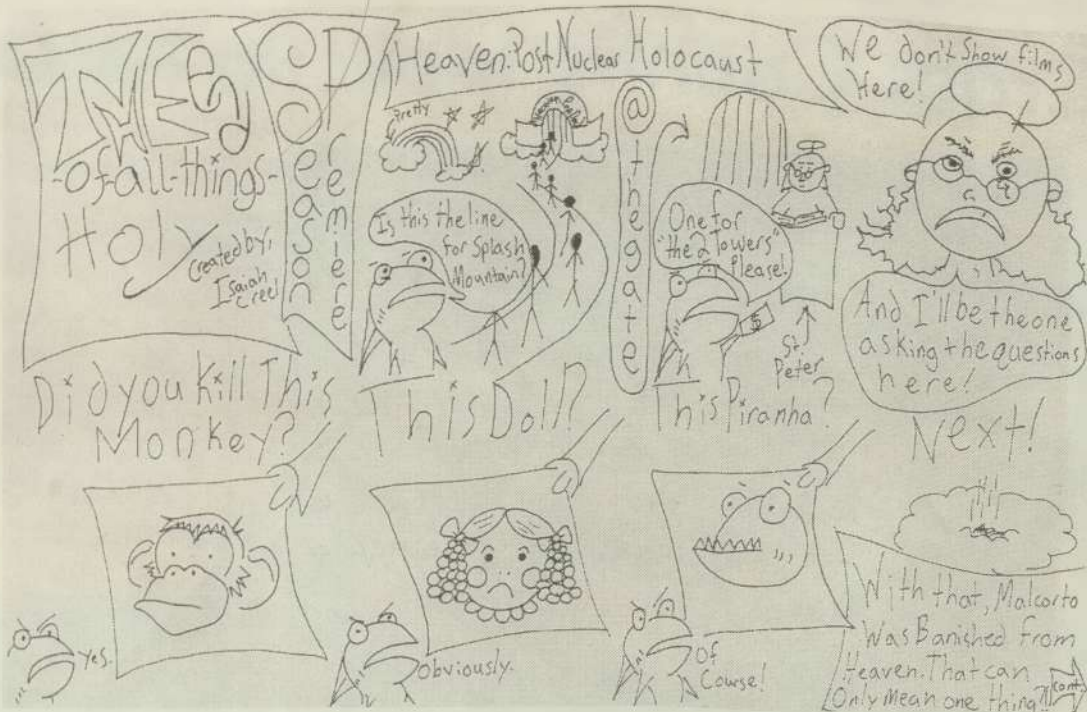 THE End
-of-all-things-
Holy
Created by,
Isaiah
Creel
Season
Premiere
Heaven: Post Nuclear Holocaust
Pretty
Is this the line
for Splash
Mountain?
@ the gate
One for
"the 2 Towers"
Please!
$
St.
Peter
We don't show films
Here!
And I'll be the one
asking the questions
here!
Did you Kill This
Monkey?
Yes.
This Doll?
Obviously.
This Piranha?
Of
Course!
Next!
With that, Malcorto
Was Banished from
Heaven. That can
Only Mean one thing?!
Cont.